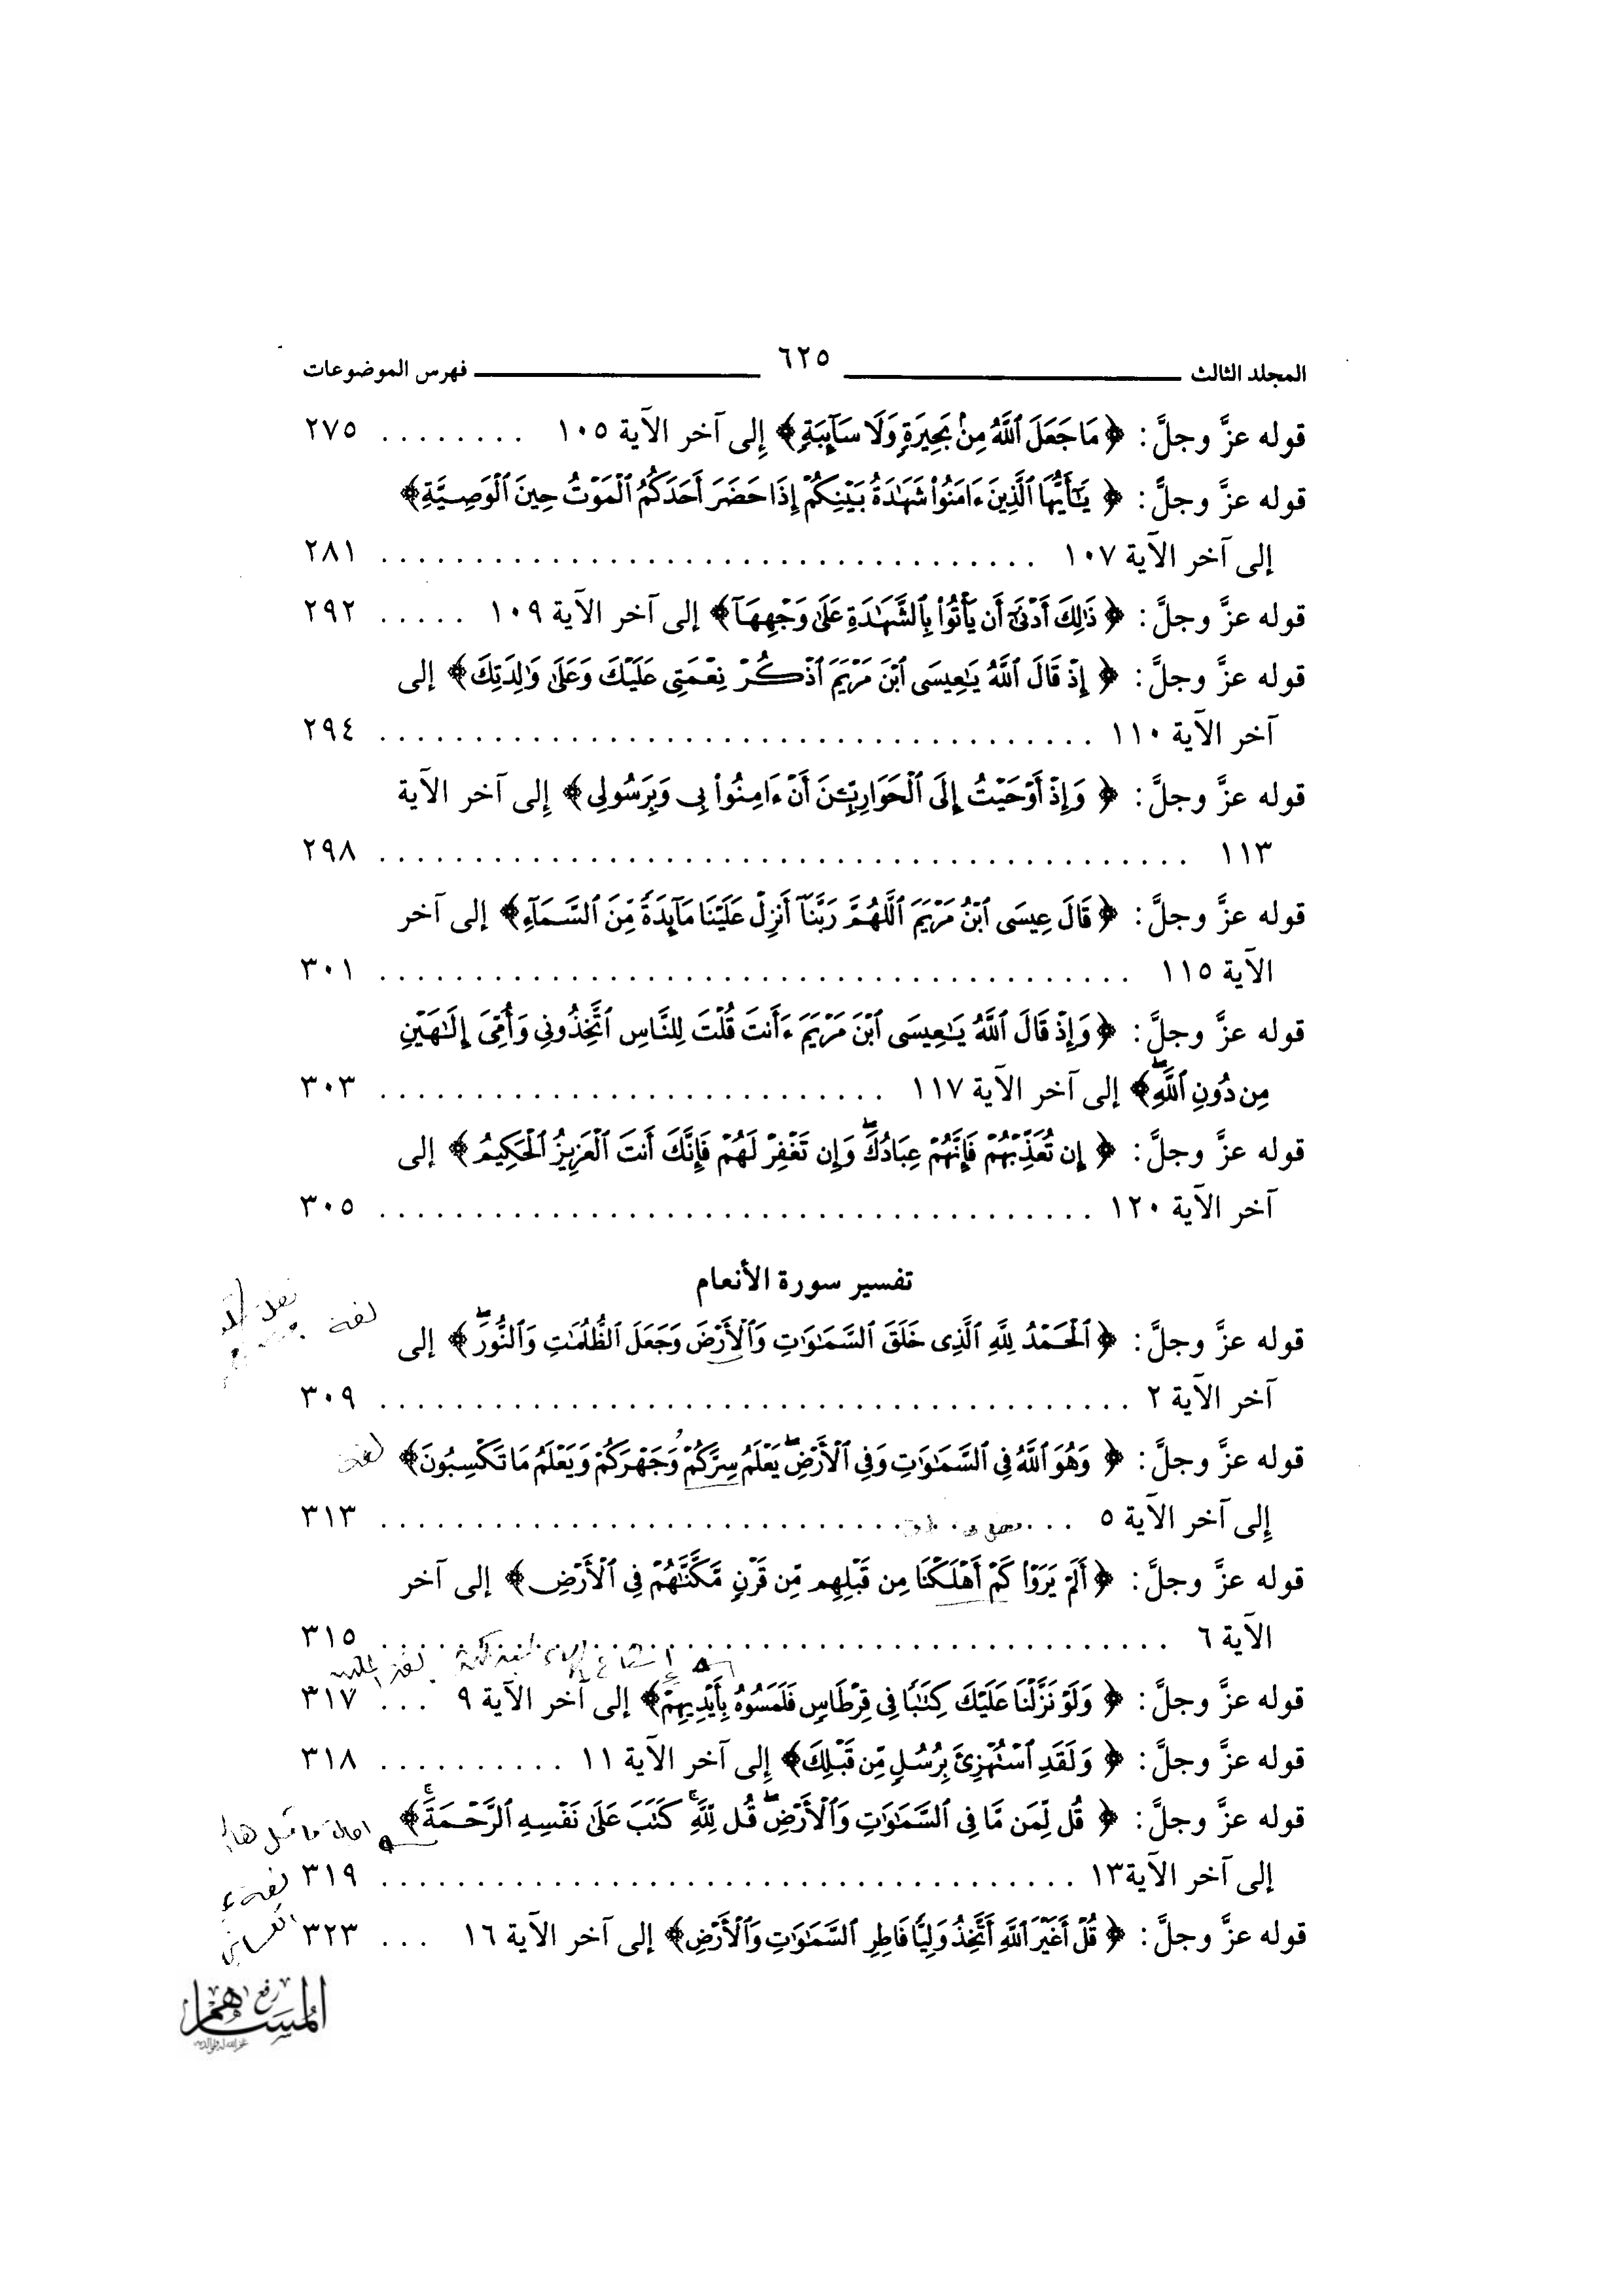 المجلد الثالث ٦٢٥ فهرس الموضوعات
قوله عزَّ وجلَّ: ﴿ مَا جَعَلَ ٱللَّهُ مِنۢ بَحِيرَةٍ وَلَا سَآئِبَةٍ﴾ إِلى آخر الآية ١٠٥ ........ ٢٧٥
قوله عزَّ وجلَّ: ﴿ يَٰٓأَيُّهَا ٱلَّذِينَ ءَامَنُوا۟ شَهَٰدَةُ بَيْنِكُمْ إِذَا حَضَرَ أَحَدَكُمُ ٱلْمَوْتُ حِينَ ٱلْوَصِيَّةِ﴾
إلى آخر الآية ١٠٧ .................................... ٢٨١
قوله عزَّ وجلَّ: ﴿ ذَٰلِكَ أَدْنَىٰٓ أَن يَأْتُوا۟ بِٱلشَّهَٰدَةِ عَلَىٰ وَجْهِهَآ﴾ إلى آخر الآية ١٠٩ ..... ٢٩٢
قوله عزَّ وجلَّ: ﴿ إِذْ قَالَ ٱللَّهُ يَٰعِيسَى ٱبْنَ مَرْيَمَ ٱذْكُرْ نِعْمَتِى عَلَيْكَ وَعَلَىٰ وَٰلِدَتِكَ﴾ إلى
آخر الآية ١١٠ ....................................... ٢٩٤
قوله عزَّ وجلَّ: ﴿ وَإِذْ أَوْحَيْتُ إِلَى ٱلْحَوَارِيِّۦنَ أَنْ ءَامِنُوا۟ بِى وَبِرَسُولِى﴾ إِلى آخر الآية
١١٣ ............................................ ٢٩٨
قوله عزَّ وجلَّ: ﴿ قَالَ عِيسَى ٱبْنُ مَرْيَمَ ٱللَّهُمَّ رَبَّنَآ أَنزِلْ عَلَيْنَا مَآئِدَةً مِّنَ ٱلسَّمَآءِ﴾ إلى آخر
الآية ١١٥ ......................................... ٣٠١
قوله عزَّ وجلَّ: ﴿ وَإِذْ قَالَ ٱللَّهُ يَٰعِيسَى ٱبْنَ مَرْيَمَ ءَأَنتَ قُلْتَ لِلنَّاسِ ٱتَّخِذُونِى وَأُمِّىَ إِلَٰهَيْنِ
مِن دُونِ ٱللَّهِۖ﴾ إلى آخر الآية ١١٧ ............................ ٣٠٣
قوله عزَّ وجلَّ: ﴿ إِن تُعَذِّبْهُمْ فَإِنَّهُمْ عِبَادُكَۖ وَإِن تَغْفِرْ لَهُمْ فَإِنَّكَ أَنتَ ٱلْعَزِيزُ ٱلْحَكِيمُ﴾ إلى
آخر الآية ١٢٠ ....................................... ٣٠٥
تفسير سورة الأنعام
قوله عزَّ وجلَّ: ﴿ ٱلْحَمْدُ لِلَّهِ ٱلَّذِى خَلَقَ ٱلسَّمَٰوَٰتِ وَٱلْأَرْضَ وَجَعَلَ ٱلظُّلُمَٰتِ وَٱلنُّورَۖ﴾ إلى
آخر الآية ٢ ......................................... ٣٠٩
قوله عزَّ وجلَّ: ﴿ وَهُوَ ٱللَّهُ فِى ٱلسَّمَٰوَٰتِ وَفِى ٱلْأَرْضِۖ يَعْلَمُ سِرَّكُمْ وَجَهْرَكُمْ وَيَعْلَمُ مَا تَكْسِبُونَ﴾
إِلى آخر الآية ٥ ...................................... ٣١٣
قوله عزَّ وجلَّ: ﴿ أَلَمْ يَرَوْا۟ كَمْ أَهْلَكْنَا مِن قَبْلِهِم مِّن قَرْنٍ مَّكَّنَّٰهُمْ فِى ٱلْأَرْضِ﴾ إلى آخر
الآية ٦ ........................................... ٣١٥
قوله عزَّ وجلَّ: ﴿ وَلَوْ نَزَّلْنَا عَلَيْكَ كِتَٰبًا فِى قِرْطَاسٍ فَلَمَسُوهُ بِأَيْدِيهِمْ﴾ إلى آخر الآية ٩ ... ٣١٧
قوله عزَّ وجلَّ: ﴿ وَلَقَدِ ٱسْتُهْزِئَ بِرُسُلٍ مِّن قَبْلِكَ﴾ إِلى آخر الآية ١١ .......... ٣١٨
قوله عزَّ وجلَّ: ﴿ قُل لِّمَن مَّا فِى ٱلسَّمَٰوَٰتِ وَٱلْأَرْضِۖ قُل لِّلَّهِۚ كَتَبَ عَلَىٰ نَفْسِهِ ٱلرَّحْمَةَۚ﴾
إلى آخر الآية١٣ ...................................... ٣١٩
قوله عزَّ وجلَّ: ﴿ قُلْ أَغَيْرَ ٱللَّهِ أَتَّخِذُ وَلِيًّا فَاطِرِ ٱلسَّمَٰوَٰتِ وَٱلْأَرْضِ﴾ إلى آخر الآية ١٦ ... ٣٢٣